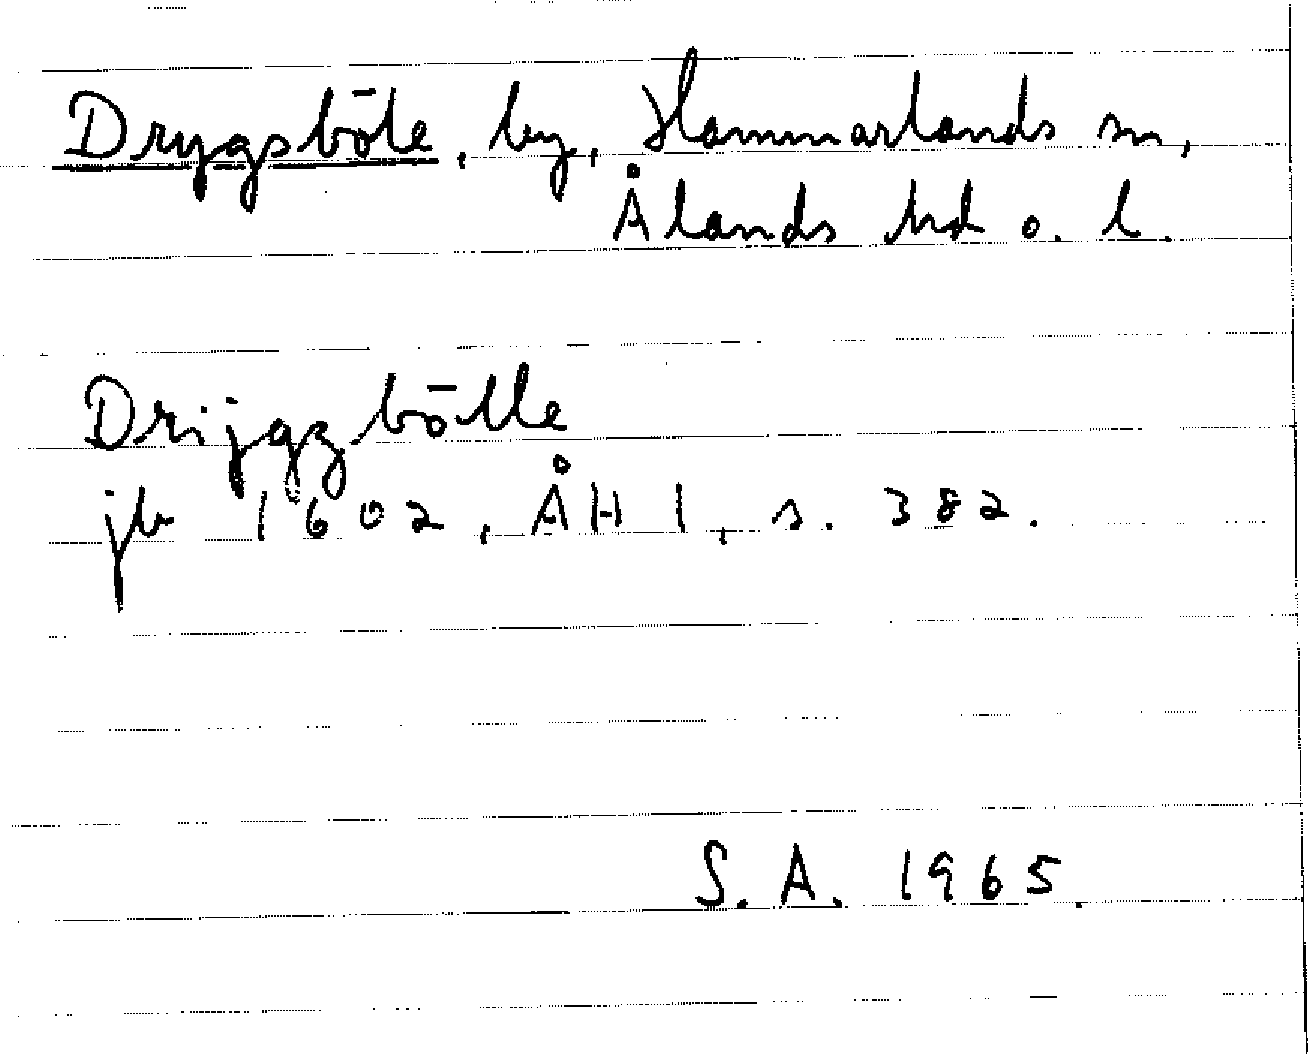 Drygsböle, by, Hammarlands sn,
Ålands hd o. l.
Drijgzbölle
jb 1602, ÅH I, s. 382.
S. A. 1965.